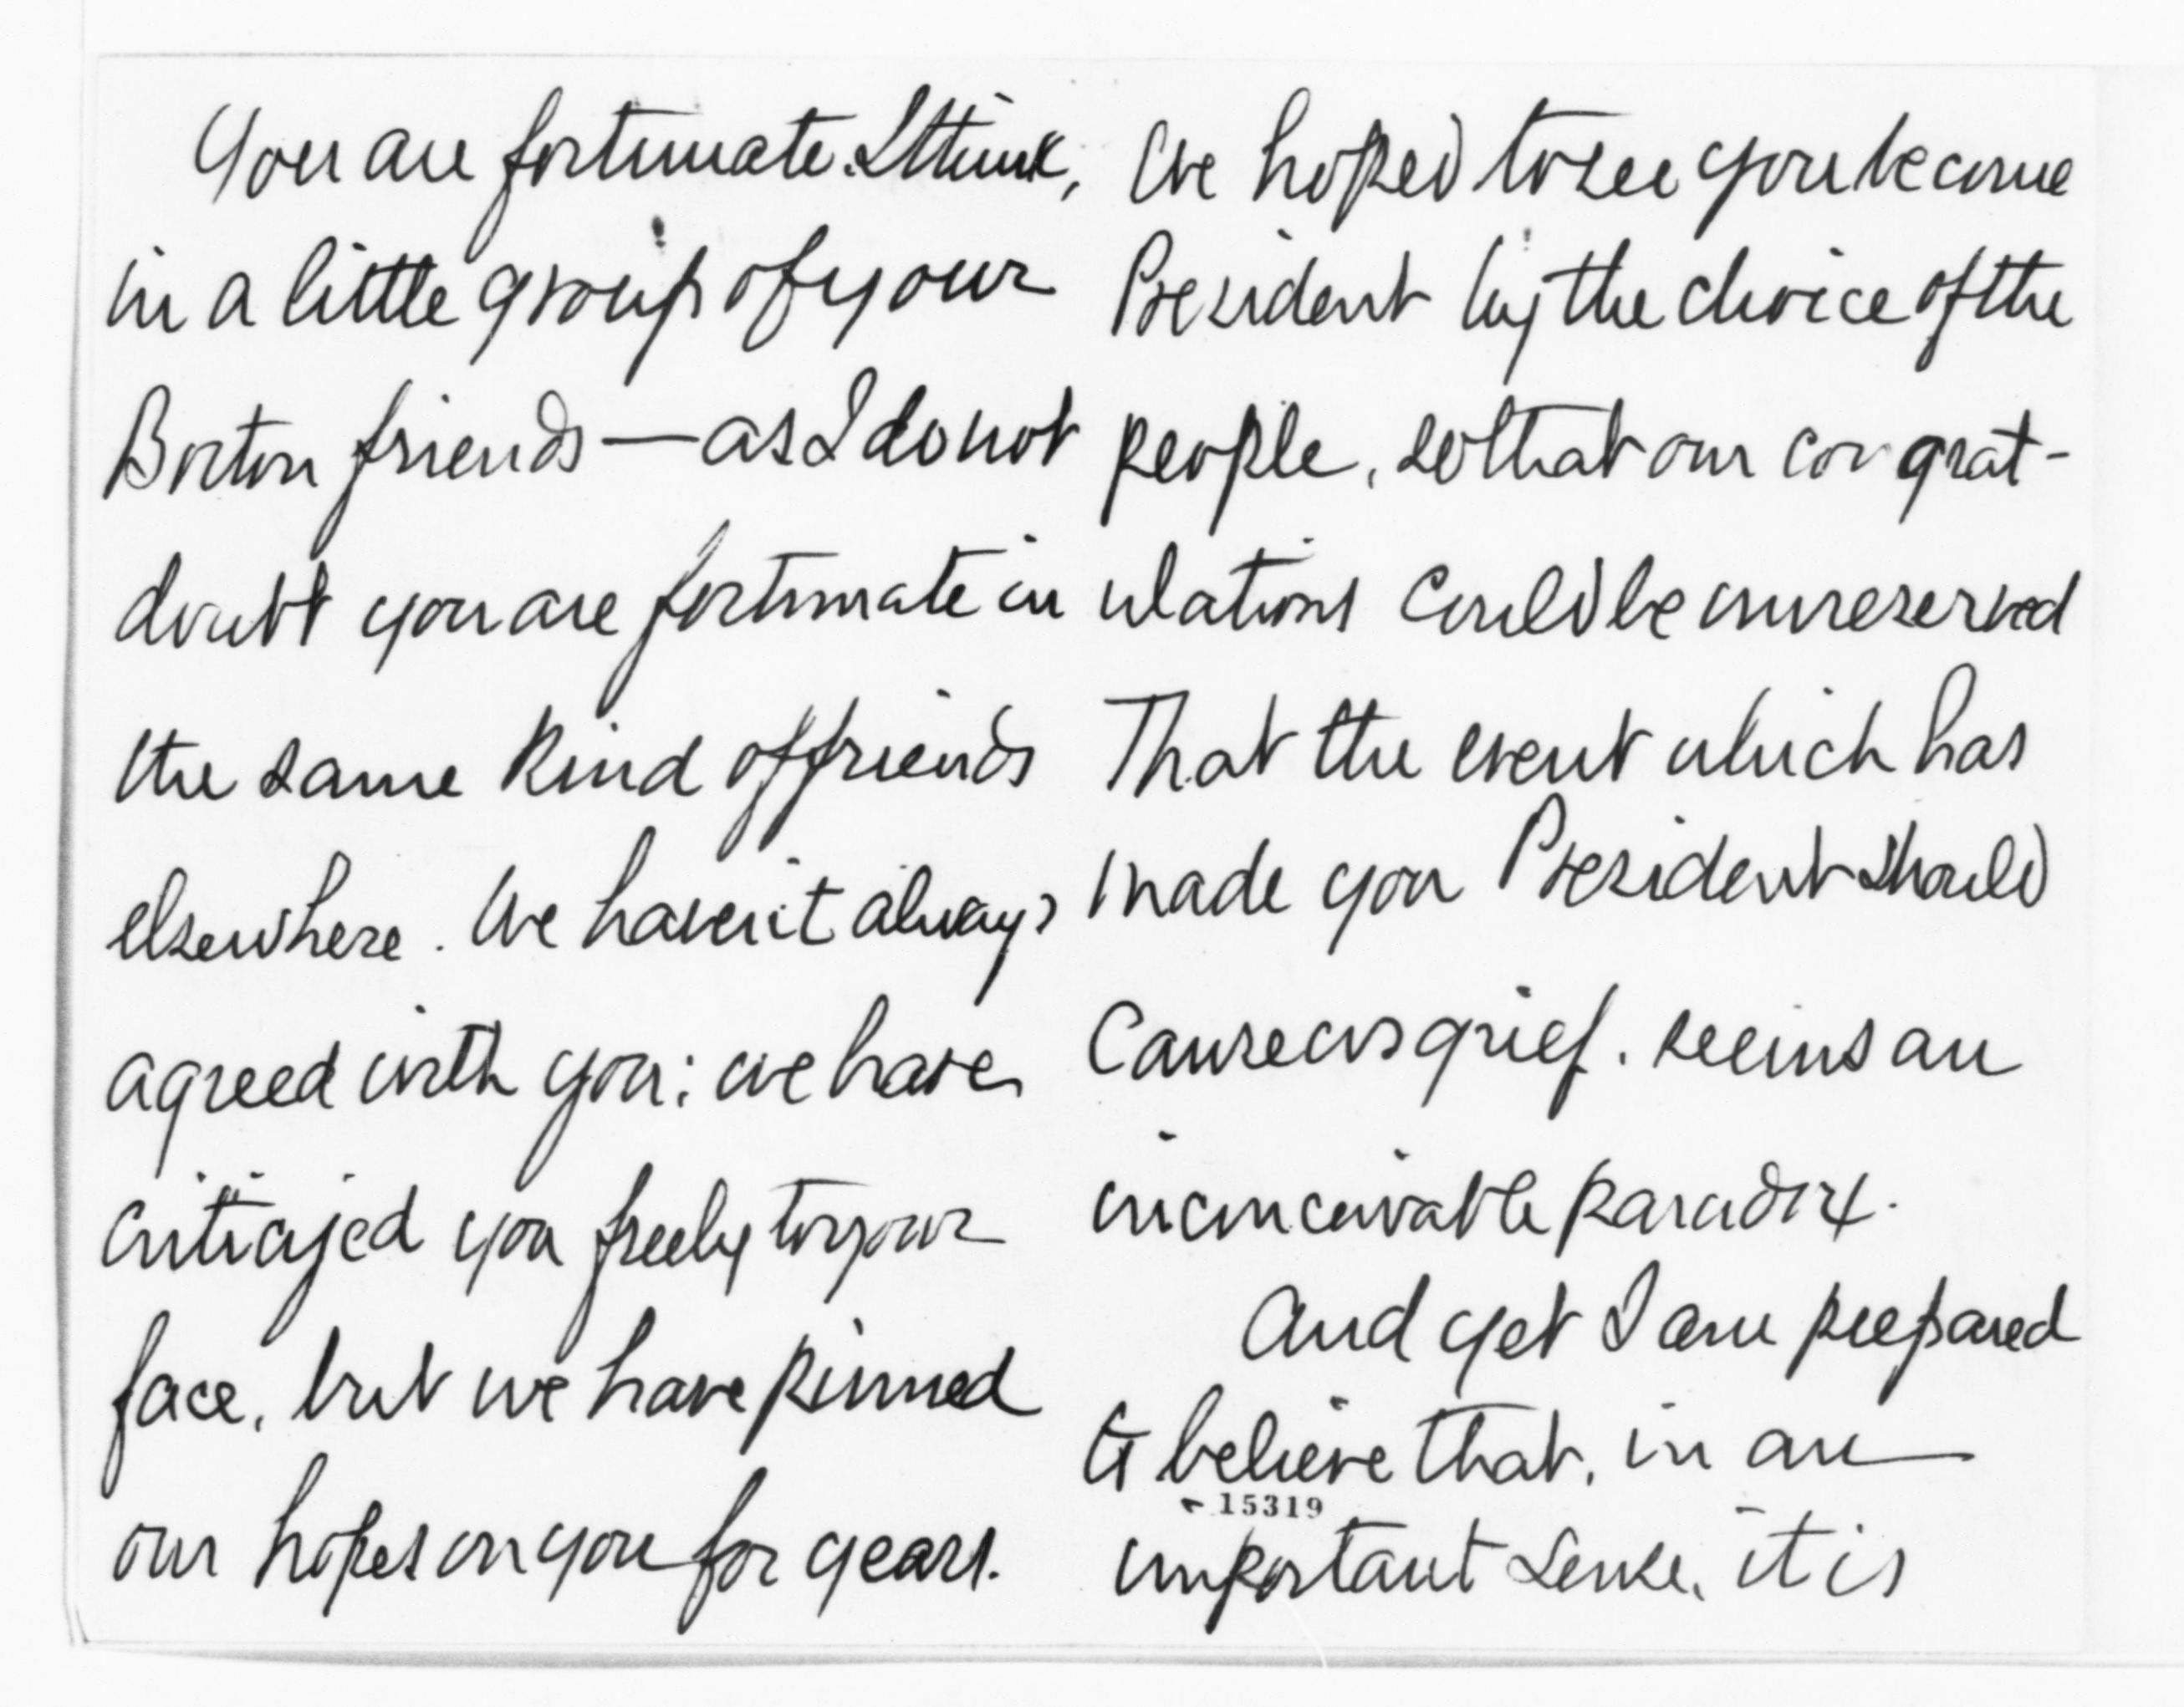 You are fortunate. I think,
in a little group of your
Boston friends — as I do not
doubt you are fortunate in
the same kind of friends
elsewhere. We haven't always
agreed with you; we have
criticized you freely to your
face, but we have pinned
our hopes on you for years.
We hoped to see you become
President by the choice of the
people, so that our congrat-
ulations could be unreserved
That the event which has
made you President should
cause us grief. seems an
inconceivable paradox.
And yet I am prepared
to believe that, in an
15319
important sense, it is